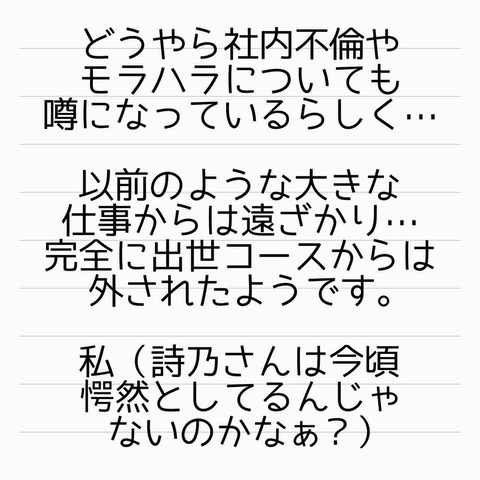 どうやら社内不倫や
モラハラについても
噂になっているらしく…
以前のような大きな
仕事からは遠ざかり…
完全に出世コースからは
外されたようです。
私（詩乃さんは今頃
愕然としてるんじゃ
ないのかなぁ？）